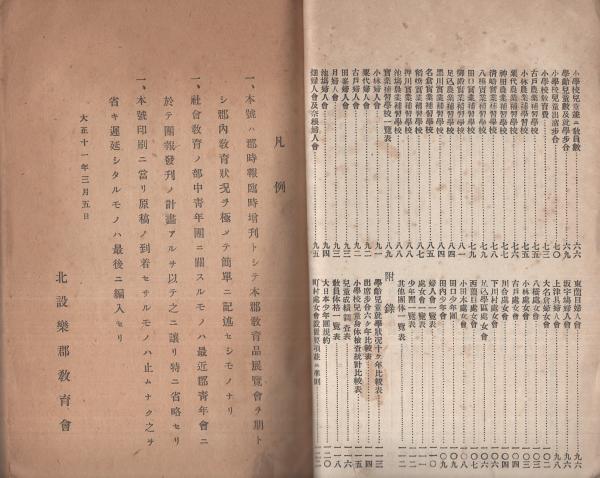 小學校兒童並ニ敎員數……六六
學齡兒童數及就學步合……六九
小學校兒童出席步合……七二
小學校敎育費……七三
古戶農業補習學校……七五
小林農業補習學校……七五
粟代農業補習學校……七六
神田農業補習學校……七六
淸崎實業補習學校……七七
八橋實業補習學校……七七
田口實業補習學校……七九
御殿實業補習學校……
足込農業補習學校……八一
黑川實業補習學校……八四
名倉實業補習學校……八四
稻橋農業補習學校……八五
押川實業補習學校……八七
池場農業補習學校……八八
實業補習學校一覽表……八九
小林婦人會……九一
粟代婦人會……九二
古戶婦人會……九二
田峯婦人會……九三
月婦人會……九三
池場婦人會……九四
畑婦人會及奈根婦人會……九五
東薗目婦人會……九六
坂宇塲婦人會……九六
上津具婦人會……九八
大名倉婦女會……一〇〇
八橋處女會……一〇二
小林處女會……一〇三
古戶處女會……一〇四
川合處女會……一〇四
下川村處女會……一〇五
足込學區處女會……一〇六
西薗目處女會……一〇七
小田木處女會……一〇八
田口少年團……一〇九
田內少年會……一一〇
婦人會一覽表……一一〇
處女會一覽表……一一一
少年團一覽表……一一二
其他團体一覽表……一一二
附錄
學齡兒童就學狀況十ケ年比較表……一一三
出席步合六ケ年比較表……一一四
小學校兒童身体檢查統計比較表……一一五
兒童成績調查表……一一六
敎員体格一覽表……一一八
大日本少年團規約……一二〇
町村處女會設置要項並ニ準則……一二二
凡例
一、本號ハ郡時報臨時增刊トシテ本郡敎育品展覽會ヲ期ト
シ郡內敎育狀況ヲ極メテ簡單ニ記述セシモノナリ
一、社會敎育ノ部中靑年團ニ關スルモノハ最近郡靑年會ニ
於テ團報發刊ノ計畫アルヲ以テ之ニ讓リ特ニ省略セリ
一、本號印刷ニ當リ原稿ノ到着セサルモノハ止ムナク之ヲ
省キ遲延シタルモノハ最後ニ編入セリ
大正十一年三月五日
北設樂郡敎育會